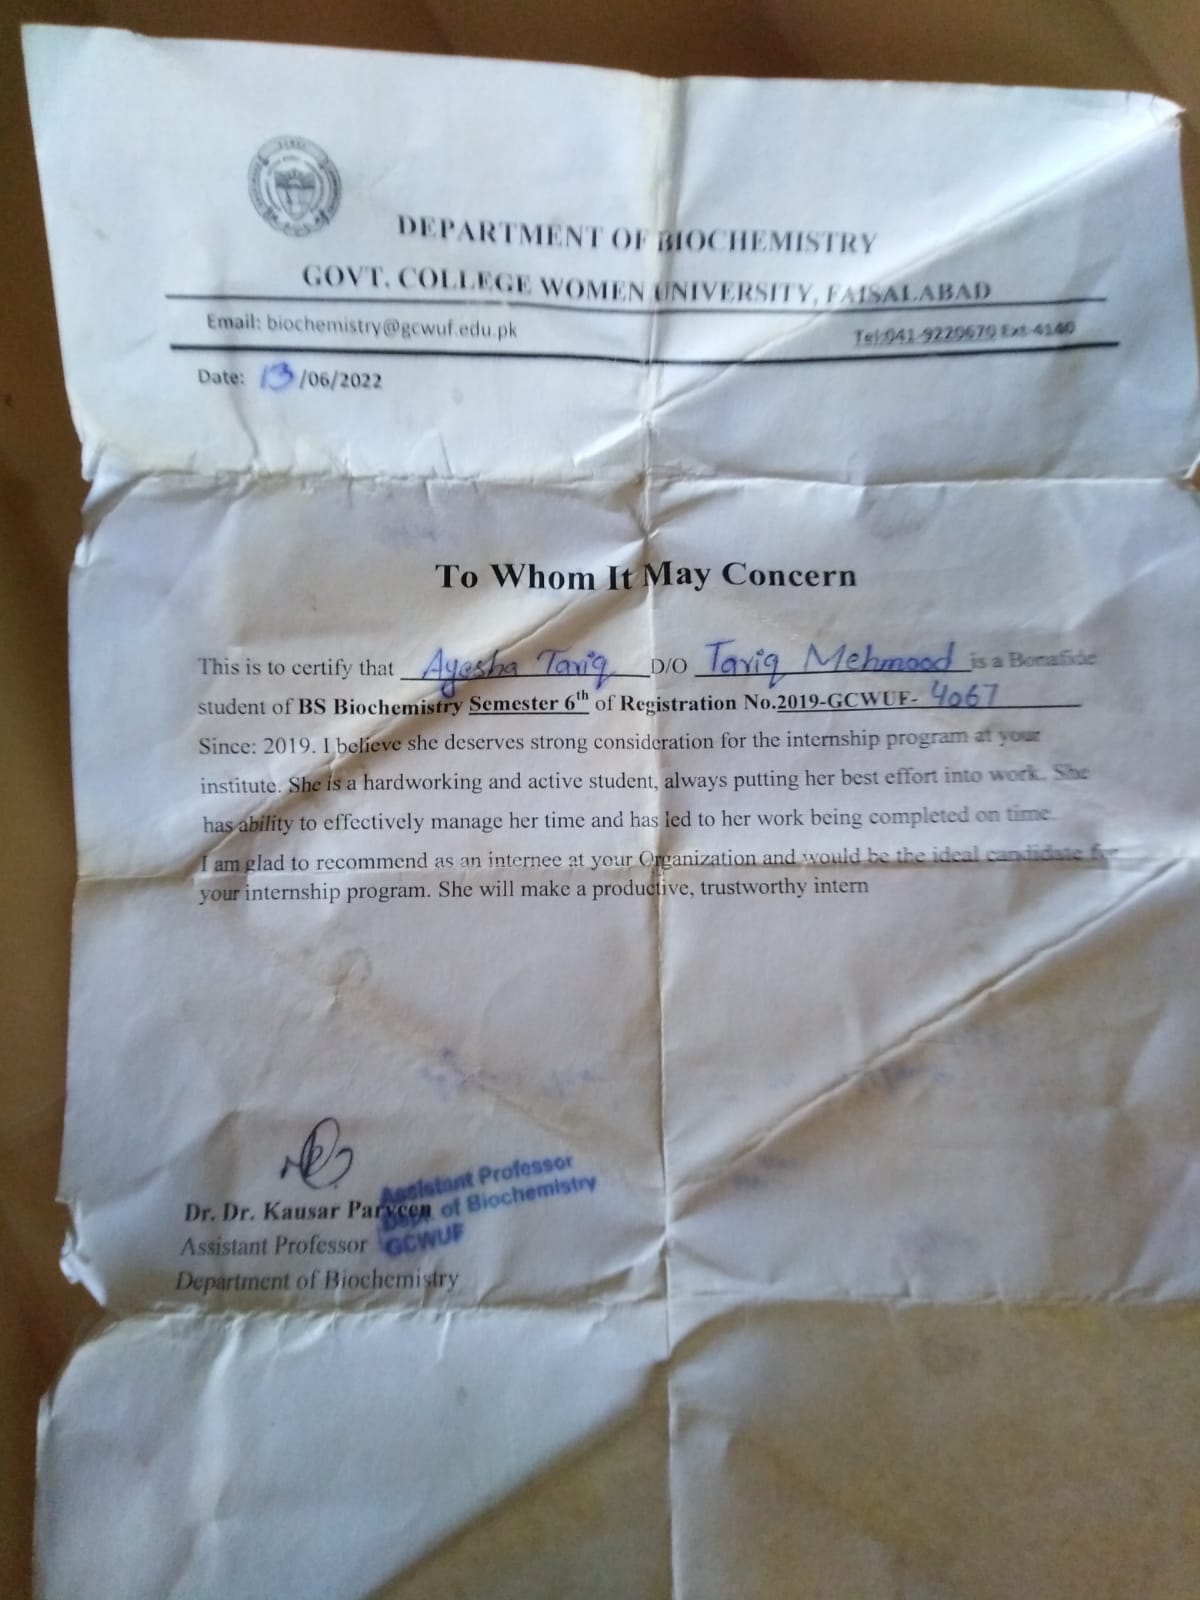 DEPARTMENT OF BIOCHEMISTRY
GOVT. COLLEGE WOMEN UNIVERSITY, FAISALABAD
Email: biochemistry@gcwuf.edu.pk Tel:041-9220670 Ext-4140
Date: 13/06/2022
To Whom It May Concern
This is to certify that Ayesha Tariq D/O Tariq Mehmood is a Bonafide
student of BS Biochemistry Semester 6th of Registration No.2019-GCWUF- 4067
Since: 2019. I believe she deserves strong consideration for the internship program at your
institute. She is a hardworking and active student, always putting her best effort into work. She
has ability to effectively manage her time and has led to her work being completed on time.
I am glad to recommend as an internee at your Organization and would be the ideal candidate for
your internship program. She will make a productive, trustworthy intern
Assistant Professor
Dept. of Biochemistry
GCWUF
Dr. Dr. Kausar Parveen
Assistant Professor
Department of Biochemistry